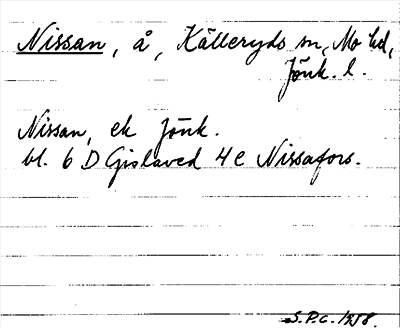 Nissan, å, Källeryds sn, Mo hd,
Jönk. l.
Nissan, ek Jönk.
bl. 6 D Gislaved 4 e Nissafors.
S.P.C. 1958.